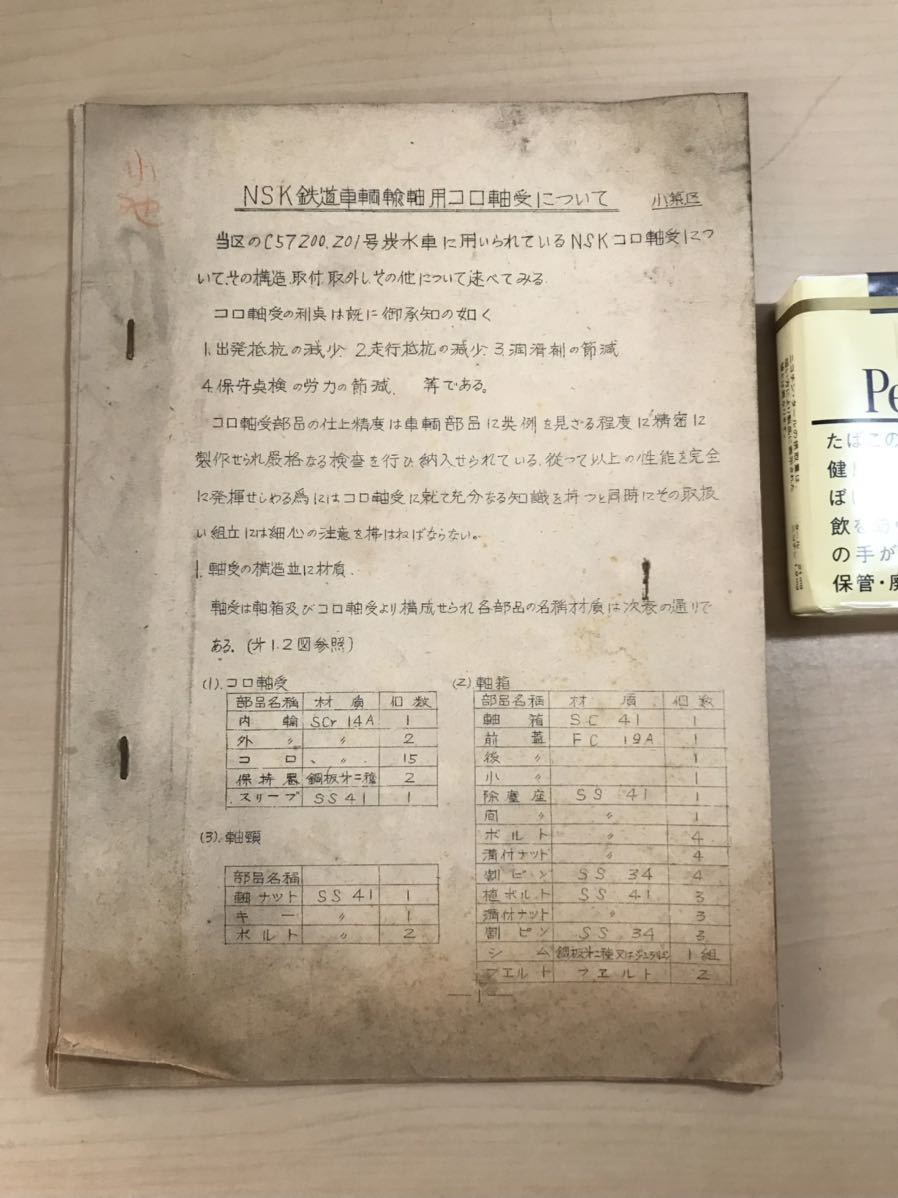 小池
NSK鉄道車輌輪軸用コロ軸受について 小築区
当区のC57200、201号炭水車に用いられているNSKコロ軸受につ
いて、その構造、取付、取外し、その他について述べてみる
コロ軸受の利点は既に御承知の如く
1.出発抵抗の減少、2.走行抵抗の減少、3.潤滑剤の節減
4.保守点検の労力の節減、 等である。
コロ軸受部品の仕上精度は車輌部品に其例を見ざる程度に精密に
製作せられ厳格なる検査を行ひ納入せられている、従つて以上の性能を完全
に発揮せしめる為にはコロ軸受に就て充分なる知識を持つと同時にその取扱
い組立には細心の注意を拂はねばならない。
1.軸受の構造並に材質.
軸受は軸箱及びコロ軸受より構成せられ各部品の名稱材質は次表の通りで
ある。(オ1.2図参照)
(1).コロ軸受
部品名稱 材質 個数
内輪 SCr14A 1
外〃 〃 2
コロ 〃 15
保持器 鋼板オ二種 2
スリーブ SS41 1
(3).軸頸
部品名稱
軸ナット SS41 1
キー 〃 1
ボルト 〃 2
(2).軸箱
部品名稱 材質 個数
軸箱 SC 41 1
前蓋 FC 19A 1
後〃 1
小〃 1
除塵座 SS 41 1
間〃 〃 1
ボルト 〃 4
溝付ナット 〃 4
割ピン SS 34 4
植ボルト SS 41 3
溝付ナット 〃 3
割ピン SS 34 3
シム 鋼板オ二種又は 1組
フエルト フエルト 2
—1—
Pe
たばこの
健
ぽ
飲
の手が
保管・廃